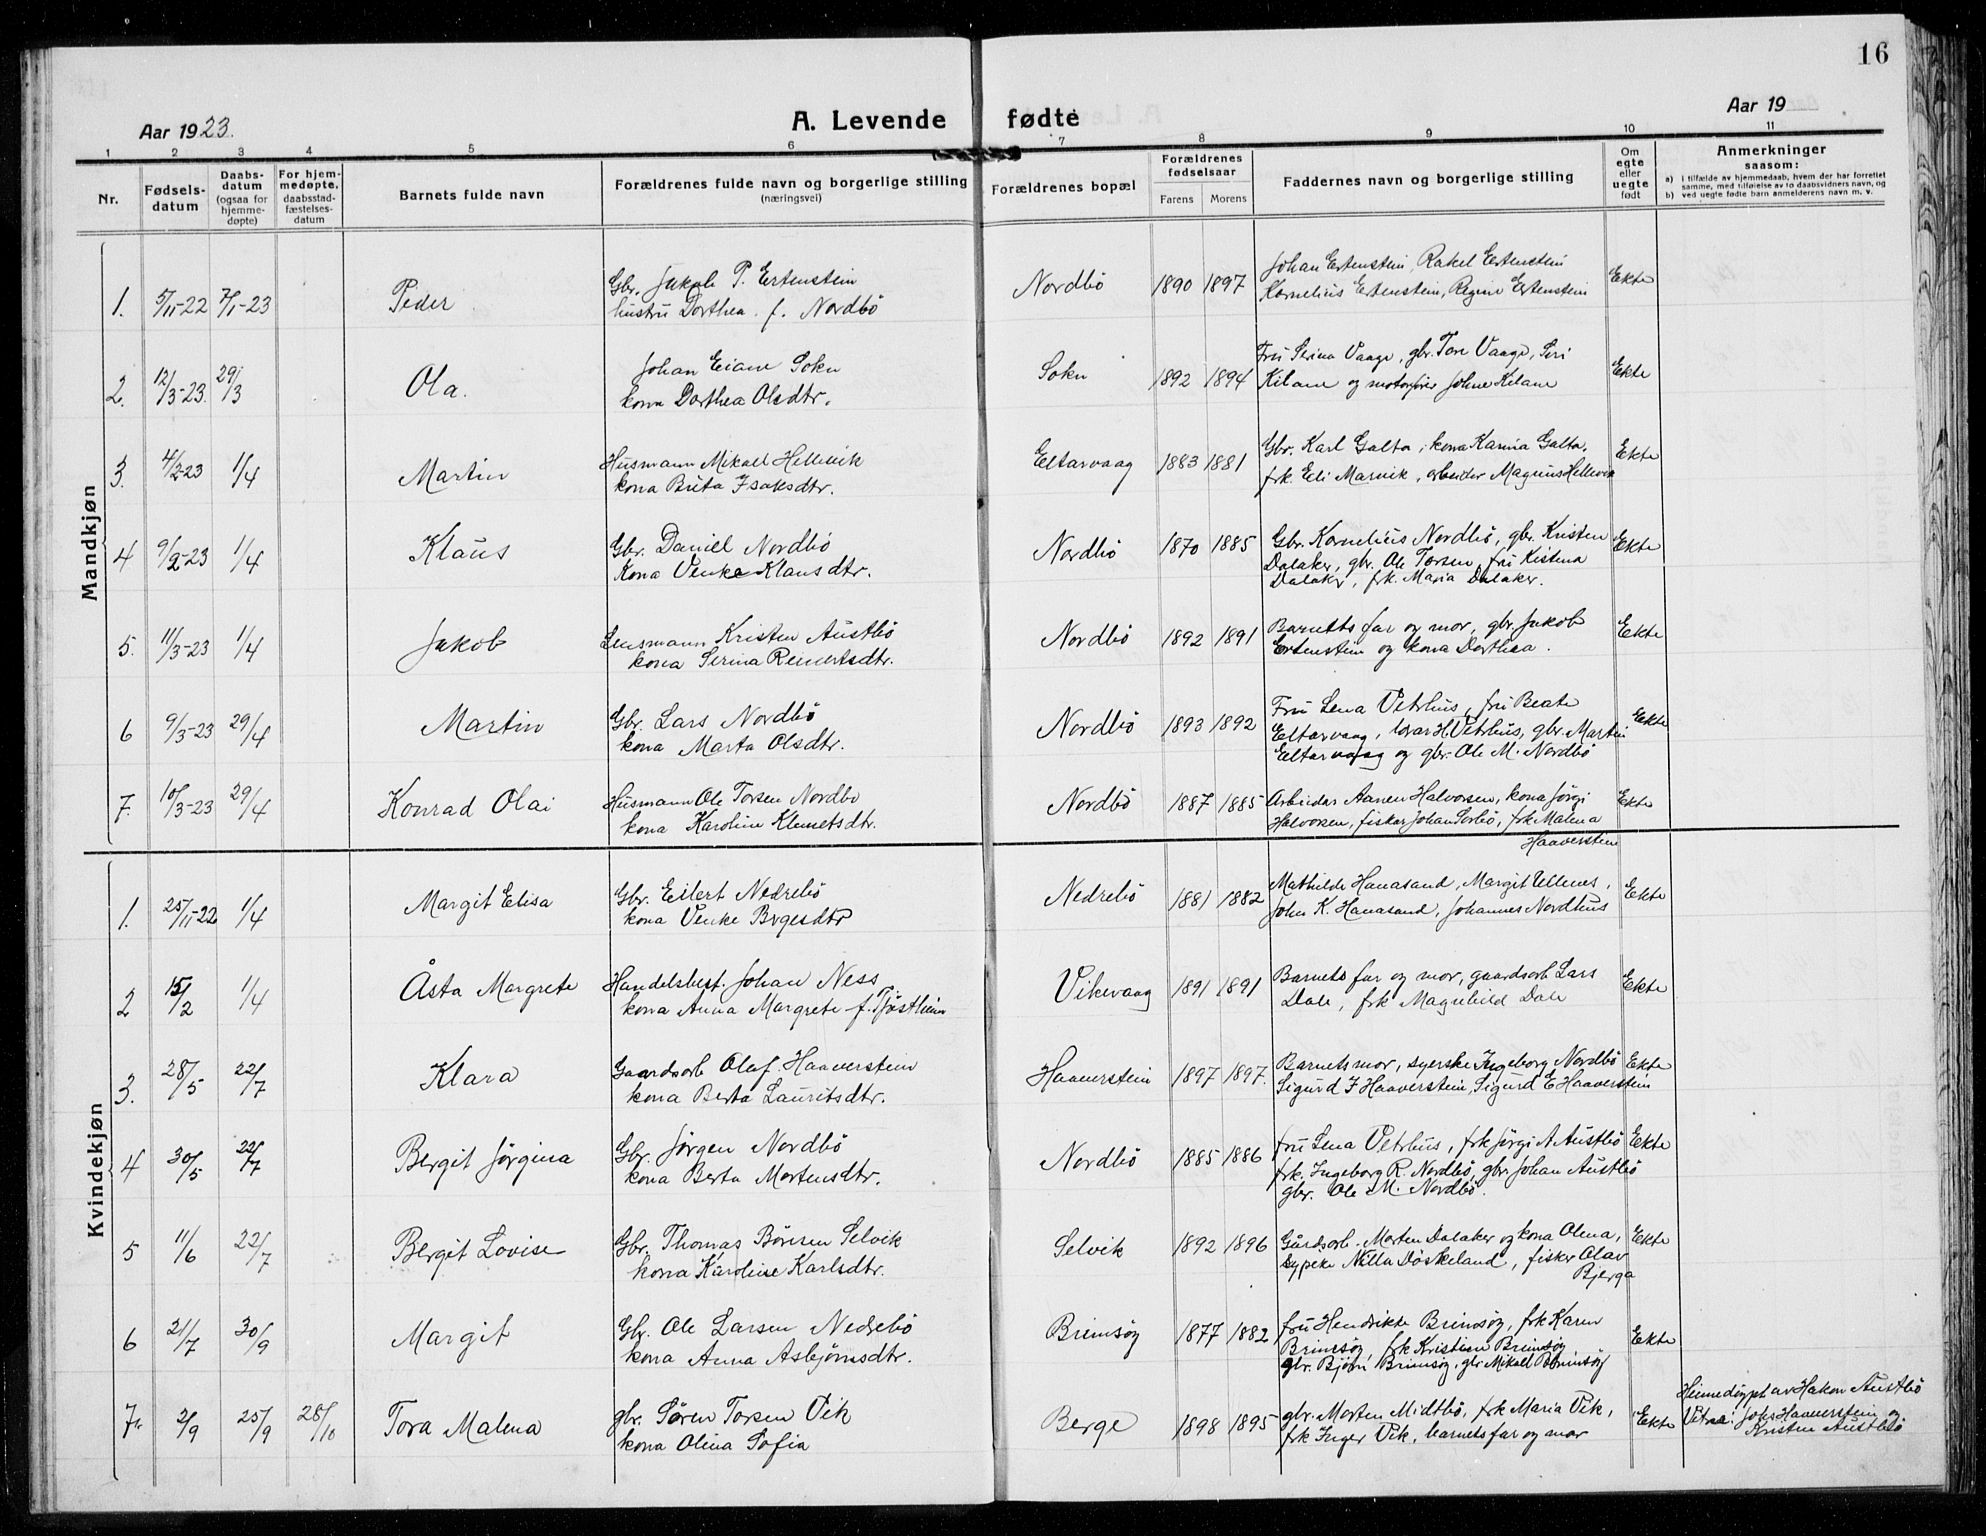 16
Aar 1923.
A. Levende fødte
Aar 19
1 2 3 4 5 6 7 8 9 10 11
Nr.
Fødsels-
datum
Daabs-
datum
(ogsaa for
hjemme-
døpte)
For hjem-
medøpte,
daabsstad-
fæstelses-
datum
Barnets fulde navn
Forældrenes fulde navn og borgerlige stilling
(næringsvei)
Forældrenes bopæl
Forældrenes
fødselsaar
Farens Morens
Faddernes navn og borgerlige stilling
Om
egte
eller
uegte
født
Anmerkninger
saasom:
a) i tilfælde av hjemmedaab, hvem der har forrettet
samme, med tilføielse av to daabsvidners navn, og
b) ved uegte fødte barn anmelderens navn m. v.
Mandkjøn
1. 5/11-22 7/1-23 Peder
Gbr. Jakob P. Ertenstein
hustru Dorthea f. Nordbö
Nordbö 1890 1897
Johan Ertenstein, Rakel Ertenstein
Kornelius Ertenstein, Regine Ertenstein
Ekte
2. 12/3-23. 29/3 Ola.
Johan Eiane Sokn
kona Dorthea Olsdtr.
Sokn 1892 1894
Fru Serina Vaage, gbr. Tore Vaage, Seri
Kilane og motorfører Johne Kilane
Ekte
3. 4/2-23 1/4 Martin
Husmann Mikael Hellevik
kona Brita Isaksdtr.
Eltarvaag 1883 1881
Gbr. Karl Galta, kona Karina Galta,
frk. Eli Marvik, arbeider Magnus Hellevik
Ekte
4 9/2-23 1/4 Klaus
Gbr. Daniel Nordbö
Kona Venke Klausdtr.
Nordbö 1870 1885
Gbr. Kornelius Nordbö, gbr. Kristen
Dalaker, gbr. Ole Torsen, fru Kistina
Dalaker, frk. Maria Dalaker.
Ekte
5. 11/3-23 1/4 Jakob
Lensmann Kristen Austbö
kona Serina Reinertsdtr.
Nordbö 1892 1891
Barnets far og mor, gbr. Jakob
Ertenstein og kona Dorthea.
Ekte
6 9/3-23 29/4 Martin
Gbr. Lars Nordbö
kona Marta Olsdtr.
Nordbö 1893 1892
Fru Lena Vetrhus, fru Beate
Eltarvaag, Ivar H. Vetrhus, gbr. Martin
Eltarvaag og gbr. Ole M. Nordbö
Ekte
7. 10/3-23 29/4 Konrad Olai
Husmann Ole Torsen Nordbö
kona Karoline Klemetsdtr.
Nordbö 1887 1885
Arbeider Aanen Halvorsen, kona Jörgi
Halvorsen, fisker Johan Sörbö, frk. Malena
Haaverstein
Ekte
Kvindekjøn
1. 25/11-22 1/4 Margit Elisa
Gbr. Eilert Nedrebö
kona Venke Bergesdtr
Nedrebö 1881 1882
Mathilde Hanasand, Margit Ullenes,
John K. Hanasand, Johannes Nordhus
Ekte
2 15/2 1/4 Åsta Margrete
Handelsbest. Johan Ness
kona Anna Margrete f. Tjöstheim
Vikevaag 1891 1891
Barnets far og mor, gaardsarb Lars
Dale, frk Magnhild Dale
Ekte
3. 28/5 22/7 Klara
Gaardsarb Olaf Haaverstein
kona Berta Lauritsdtr.
Haaverstein 1897 1897.
Barnets mor, syerske Ingeborg Nordbö
Sigurd J Haaverstein, Sigurd E Haaverstein
Ekte
4 30/5 22/7 Bergit Jörgina
Gbr. Jörgen Nordbö
kona Berta Mortensdtr.
Nordbö 1885 1886
fru Lena Vetrhus, frk Jörgi A Austbö
frk. Ingeborg R. Nordbö, gbr. Johan Austbö
gbr. Ole M. Nordbö.
Ekte
5 11/6 22/7 Bergit Lovise
Gbr. Thomas Börisen Selvik
kona Karoline Karlsdtr.
Selvik 1892 1896
Gårdsarb. Morten Dalaker og kona Olena,
sypike Nilla Döskeland, fisker Olav
Bjerga
Ekte
6 21/7 30/9 Margit
Gbr. Ole Larsen Nedrebö
kona Anna Asbjörnsdtr.
Brimsög 1877 1882
fru Hendrikte Brimsög, frk Karen
Brimsög, frk Kristine Brimsög
gbr. Björn Brimsög, gbr Mikael Brimsög
Ekte
7. 2/9 25/9 28/10 Tora Malena
gbr. Sören Torsen Vik
kona Olina Sofia
Berge 1898 1895
gbr. Morten Midtbö, frk Maria Vik,
frk Inger Vik, barnets far og mor
Ekte
Heimedöypt av Hakon Austbö
Vitne: Johs Haaverstein og
Kristen Austbö